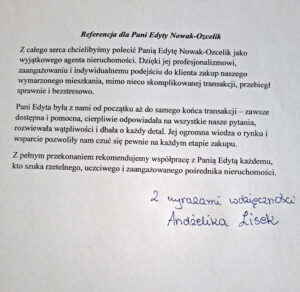 Referencja dla Pani Edyty Nowak-Ozcelik
Z całego serca chcielibyśmy polecić Panią Edytę Nowak-Ozcelik jako
wyjątkowego agenta nieruchomości. Dzięki jej profesjonalizmowi,
zaangażowaniu i indywidualnemu podejściu do klienta zakup naszego
wymarzonego mieszkania, mimo nieco skomplikowanej transakcji, przebiegł
sprawnie i bezstresowo.
Pani Edyta była z nami od początku aż do samego końca transakcji – zawsze
dostępna i pomocna, cierpliwie odpowiadała na wszystkie nasze pytania,
rozwiewała wątpliwości i dbała o każdy detal. Jej ogromna wiedza o rynku i
wsparcie pozwoliły nam czuć się pewnie na każdym etapie zakupu.
Z pełnym przekonaniem rekomendujemy współpracę z Panią Edytą każdemu,
kto szuka rzetelnego, uczciwego i zaangażowanego pośrednika nieruchomości.
Z wyrazami wdzięczności
Andżelika Lisek